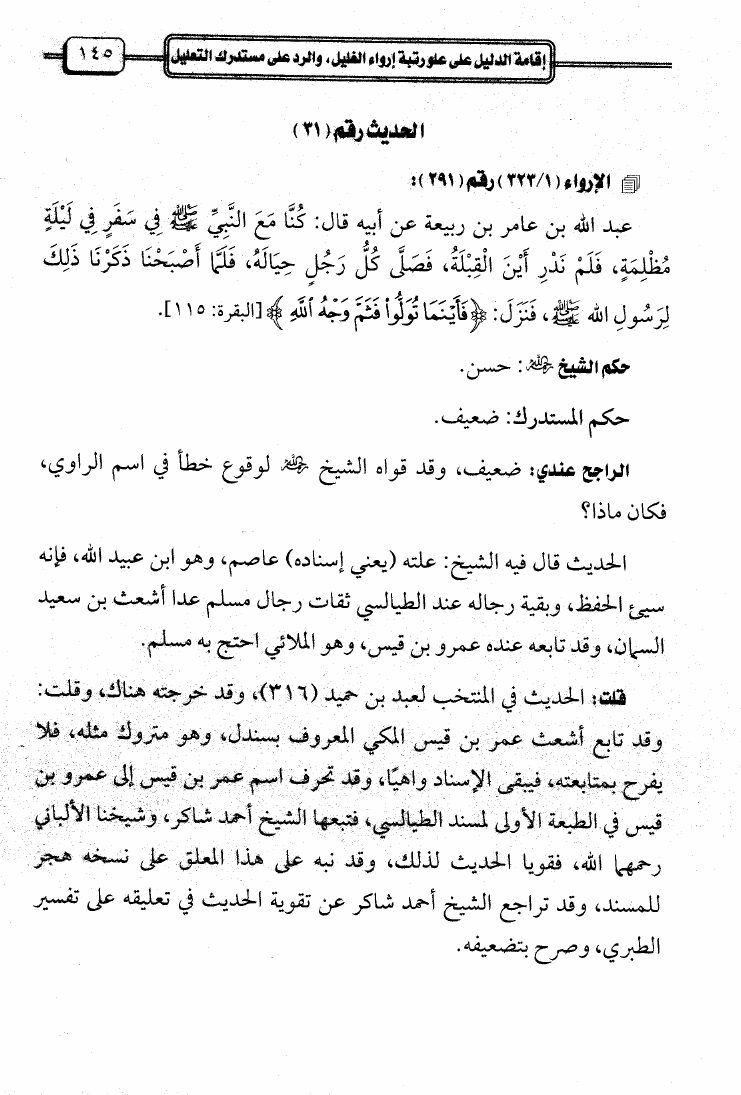 إقامة الدليل على علو رتبة إرواء الغليل، والرد على مستدرك التعليل
١٤٥
الحديث رقم (٣١)
الإرواء (٣٢٣/١) رقم (٢٩١):
عبد الله بن عامر بن ربيعة عن أبيه قال: كُنَّا مَعَ النَّبِيِّ ﷺ فِي سَفَرٍ فِي لَيْلَةٍ
مُظْلِمَةٍ، فَلَمْ نَدْرِ أَيْنَ الْقِبْلَةُ، فَصَلَّى كُلُّ رَجُلٍ حِيَالَهُ، فَلَمَّا أَصْبَحْنَا ذَكَرْنَا ذَلِكَ
لِرَسُولِ الله ﷺ، فَنَزَلَ: ﴿فَأَيْنَمَا تُوَلُّوا۟ فَثَمَّ وَجْهُ ٱللَّهِ﴾ [البقرة: ١١٥].
حكم الشيخ رحمه الله: حسن.
حكم المستدرك: ضعيف.
الراجح عندي: ضعيف، وقد قواه الشيخ رحمه الله لوقوع خطأ في اسم الراوي،
فكان ماذا؟
الحديث قال فيه الشيخ: علته (يعني إسناده) عاصم، وهو ابن عبيد الله، فإنه
سيئ الحفظ، وبقية رجاله عند الطيالسي ثقات رجال مسلم عدا أشعث بن سعيد
السمان، وقد تابعه عنده عمرو بن قيس، وهو الملائي احتج به مسلم.
قلت: الحديث في المنتخب لعبد بن حميد (٣١٦)، وقد خرجته هناك، وقلت:
وقد تابع أشعث عمر بن قيس المكي المعروف بسندل، وهو متروك مثله، فلا
يفرح بمتابعته، فيبقى الإسناد واهيًا، وقد تحرف اسم عمر بن قيس إلى عمرو بن
قيس في الطبعة الأولى لمسند الطيالسي، فتبعها الشيخ أحمد شاكر، وشيخنا الألباني
رحمهما الله، فقويا الحديث لذلك، وقد نبه على هذا المعلق على نسخه هجر
للمسند، وقد تراجع الشيخ أحمد شاكر عن تقوية الحديث في تعليقه على تفسير
الطبري، وصرح بتضعيفه.